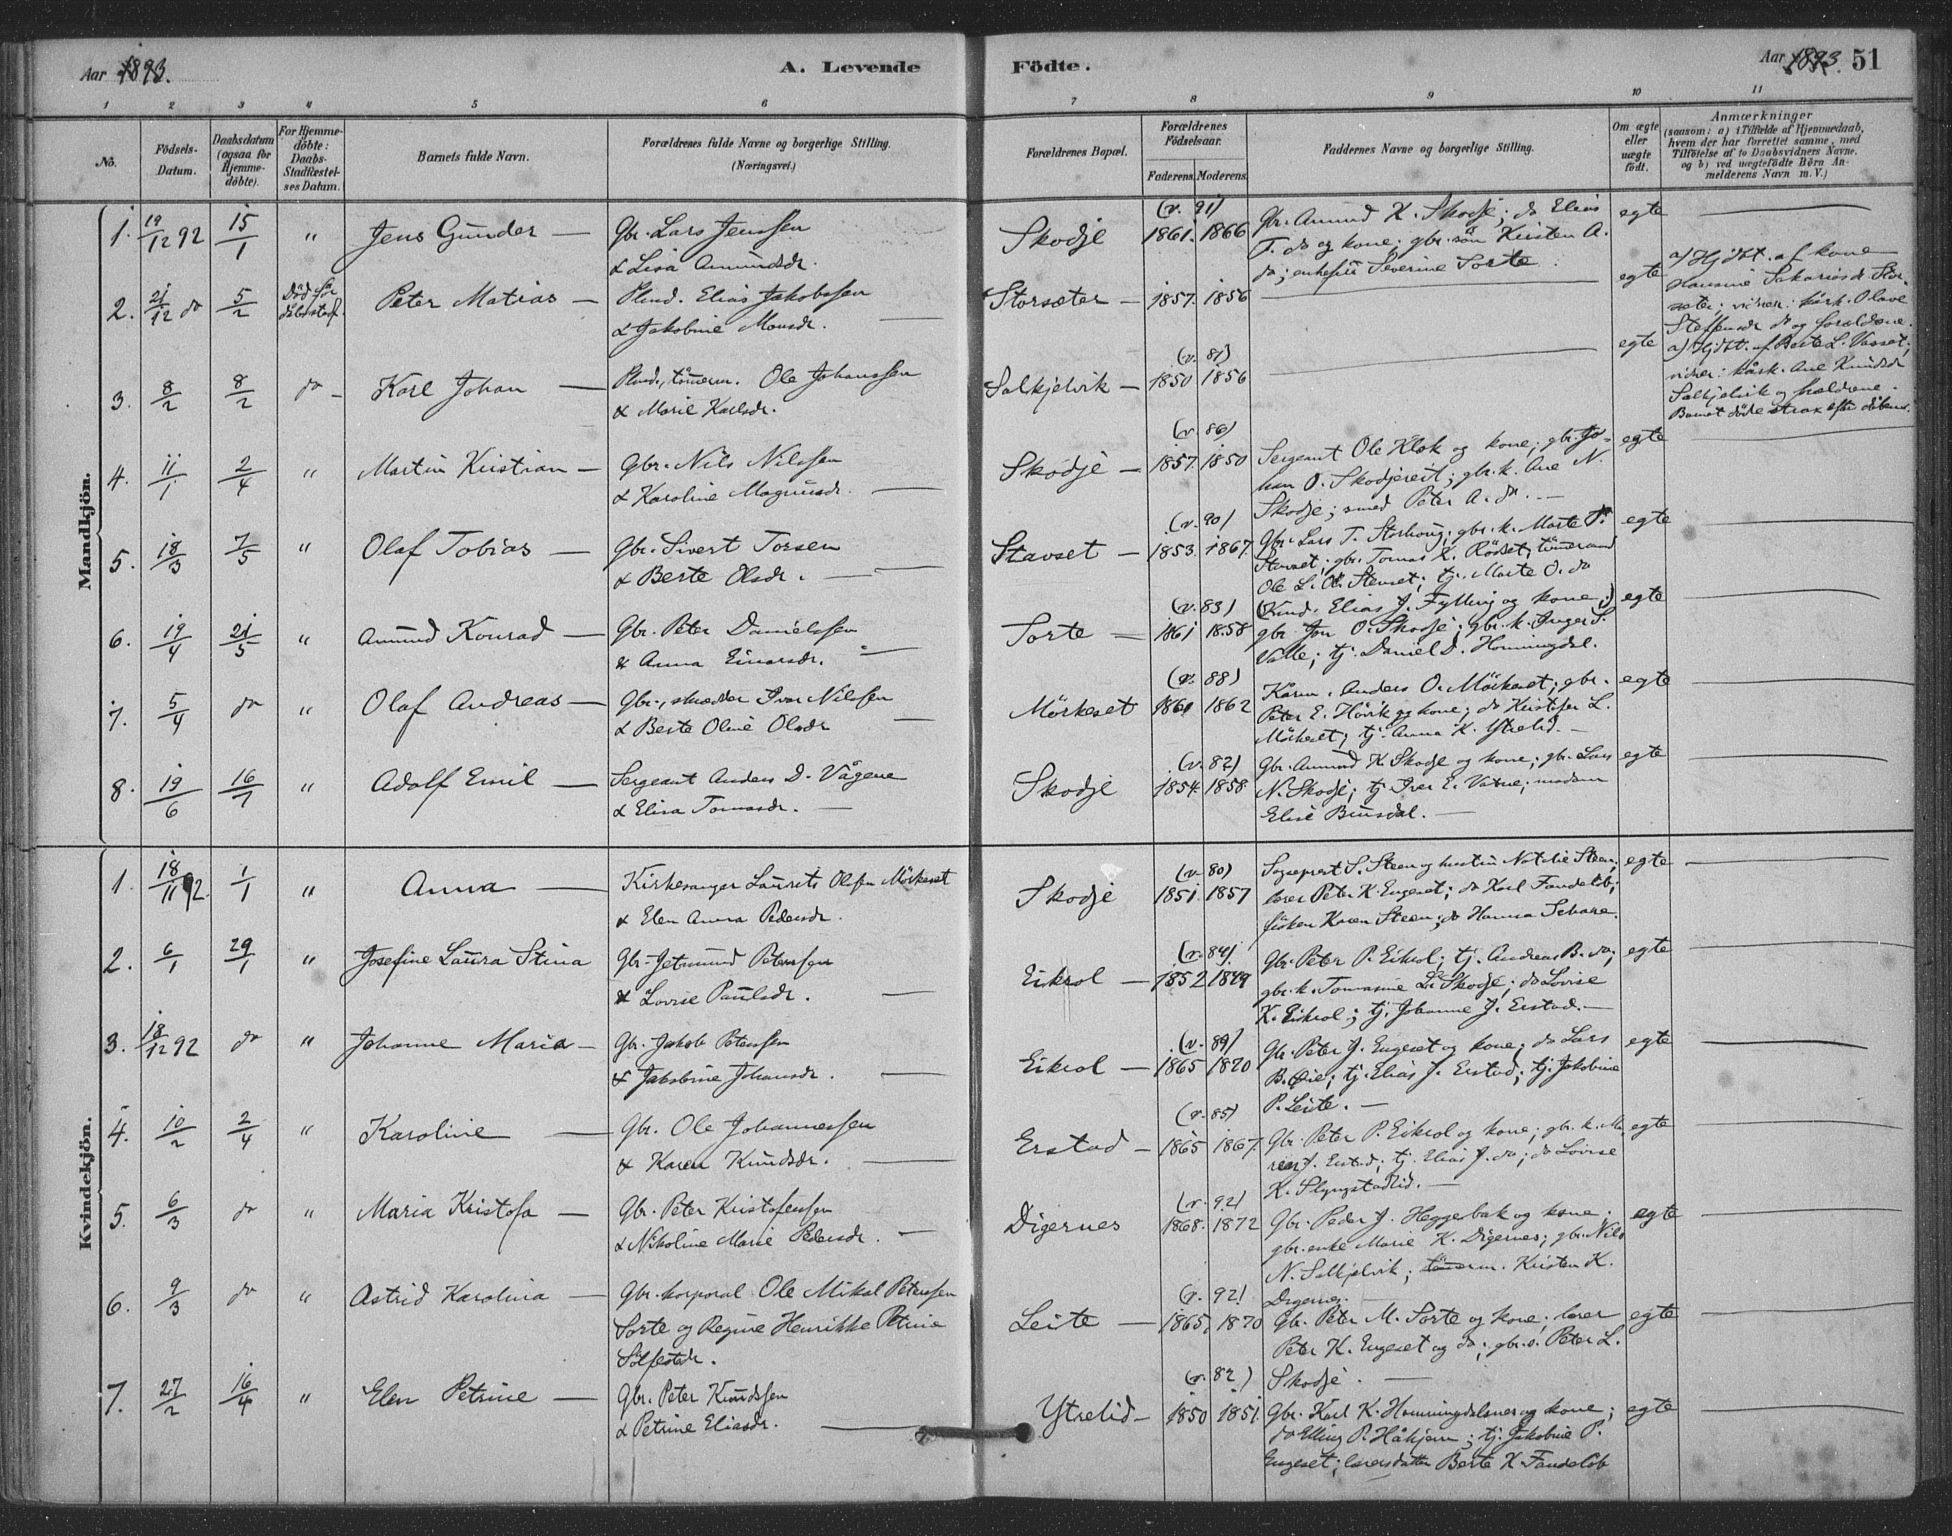 Aar 1893.
A. Levende
Födte.
Aar 1893. 51
1 2 3 4 5 6 7 8 9 10 11
No.
Födsels-
Datum.
Daabsdatum
(ogsaa for
Hjemme-
döbte).
For Hjemme-
döbte:
Daabs-
Stadfæstel-
ses Datum.
Barnets fulde Navn.
Forældrenes fulde Navne og borgerlige Stilling.
(Næringsvei.)
Forældrenes Bopæl.
Forældrenes
Födselsaar.
Faderens. Moderens.
Faddernes Navne og borgerlige Stilling.
Om ægte
eller
uægte
födt.
Anmærkninger
(saasom: a) i Tilfælde af Hjemmedaab,
hvem der har forrettet samme, med
Tilföielse af to Daabsvidners Navne,
og b) ved uægtefödte Börn An-
melderens Navn m. V.)
Mandkjön.
1. 19/12 92 15/1 " Jens Gunder —
Gbr. Lars Jenssen
& Lisa Amundsdr.
Skodje
(v. 91)
1861. 1866
Gbr. Amund K. Skodje; do Elias
T. do og kone; gbr. sön Kirsten A.
do; enkefru Severine Sorte
egte
2. 21/12 do 5/2 Död för
dåbsstadf.
Peter Matias —
Plind. Elias Jakobssen
& Jakobine Monsdr.
Storsæter — 1857. 1856
egte
a) Hjdbt. af kone
Hansine Sakariasdr Stor-
sæter; vidner: kårk. Olave
Steffensdr do og forældrene.
3. 8/2 8/2 do — Karl Johan —
Plind., tömerm. Ole Johanssen
& Marie Karlsdr.
Solkjelvik —
(v. 81)
1850 1856
egte
a) Hjdbt. af Berte L. Vasset;
vidner: kårk. Ane Knudsdr
Solkjelvik og forældrene.
Barnet döde strax efter dåben.
4. 11/1 2/4 " Martin Kristian —
Gbr. Nils Nilssen
& Karoline Magnusdr.
Skodje —
(v. 86)
1857. 1850
Sergeant Ole Klok og kone; gbr. Jo-
han O. Skodjereit; gbr. k. Ane N.
Skodje; smed Peter A. do. —
egte
5. 18/3 7/5 " Olaf Tobias —
Gbr. Sivert Torsen
& Berte Olsdr.
Stavset —
(v. 90)
1853. 1867.
Gbr. Lars T. Storhaug; gbr. k. Marte P.
Stavset; gbr. Tomas K. Rödset; tömermand
Ole L. Stavset; tj. Marte O. do
egte
6. 19/4 21/5 " Amund Konrad —
Gbr. Peter Danielssen
& Anna Einarsdr.
Sorte —
(v. 83)
1861 1858
Elias J. Fylling og kone;
gbr. Jon O. Skodje; gbr. k. Inger S.
Valle; tj. Daniel D. Honningdal.
egte
7. 5/4 do " Olaf Andreas —
Gbr., skrædder Iver Nilssen
& Berte Oline Olsdr
Mörkeset
(v. 88)
1860 1862
Kårm. Anders O. Mörkeset; gbr.
Peter E. Hövik og kone; do Kristofer L.
Mörkeset; tj. Anna K. Ytrelid. —
egte
8. 19/6 16/7 " Adolf Emil —
Sergeant Anders D. Vågene
& Elisa Tomasdr. —
Skodje
(v. 82)
1854. 1858.
Gbr. Amund K. Skodje og kone; gbr. Lars
N. Skodje; tj. Iver E. Vatne; madam
Elise Brusdal. —
egte
Kvindekjön.
1. 18/11 92. 1/1 " Anna —
Kirkesanger Laurits Olssen Mörkeset
& Elen Anna Pedersdr.
Skodje
(v. 80)
1851. 1857
Sogneprest S. Steen og hustru Natalie Steen;
lærer Peter K. Engeset; do Karl Fandelöb;
fröken Karen Steen; do Hanna
egte
2. 6/1 29/1 " Josefine Laura Stina
Gbr. Jetmund Peterssen
& Lovise Paulsdr.
Eikrol —
(v. 84)
1852 1849
Gbr. Peter P. Eikrol; tj. Andreas B. do;
gbr. k. Tomasine L. Skodje; do Lovise
K. Eikrol; tj. Johanne J. Erstad. —
egte
3. 18/12 92 do " Johanne Maria —
Gbr. Jakob Peterssen
& Jakobine Johansdr.
Eikrol —
(v. 89)
1865 1870
Gbr. Peter J. Engeset og kone; do Lars
B. Öie; tj. Elias J. Erstad; tj. Jakobine
P. Leite. —
egte
4. 10/2 2/4 " Karoline —
Gbr. Ole Johannessen
& Karen Knudsdr.
Erstad —
(v. 85)
1865 1867.
Gbr. Peter P. Eikrol og kone; gbr. k. Ma-
J. Erstad; tj. Elias J. do; do Lovise
K. Slyngstadlid. —
egte
5. 6/3 do " Maria Kristofa —
Gbr. Peter Kristofersen
& Nikoline Marie Pedersdr.
Digernes
(v. 92)
1868. 1872
Gbr. Peder J. Heggebak og kone;
gbr. enke Marie K. Digernes; gbr. Nils
N. Solkjelvik; tömerm. Kristen K.
Digernes.
egte
6. 9/3 do " Astrid Karolina —
Gbr. korporal Ole Mikal Peterssen
Sorte og Regine Henrikke Petrine
Sölfestdr.
Leite —
(v. 92)
1865, 1870
Gbr. Peter M. Sorte og kone; lærer
Peter K. Engeset og do; gbr. s. Peter L.
Skodje. —
egte
7. 27/2 16/4 " Elen Petrine —
Gbr. Peter Knudssen
& Petrine Eliasdr.
Ytrelid —
(v. 82)
1850 1851.
Gbr. Karl K. Honningdalsnes og kone;
do Elling P. Håkjem; tj. Jakobine P.
Engeset; lærersdatter Berte K. Fandelöb
egte